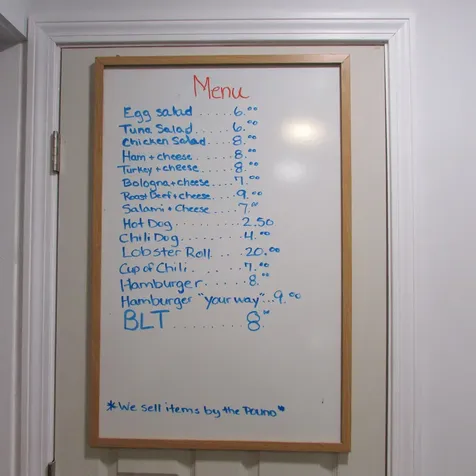 Menu
Egg salad ..... 6.00
Tuna Salad ..... 6.00
Chicken Salad .. 8.00
Ham + cheese .... 8.00
Turkey + cheese ... 8.00
Bologna + cheese .... 7.00
Roast Beef + cheese ... 9.00
Salami + Cheese .... 7.00
Hot Dog ......... 2.50
Chili Dog ........ 4.00
Lobster Roll .... 20.00
Cup of Chili ...... 7.00
Hamburger ...... 8.00
Hamburger "your way" ... 9.00
BLT ........ 8.00
*We sell items by the Pound*